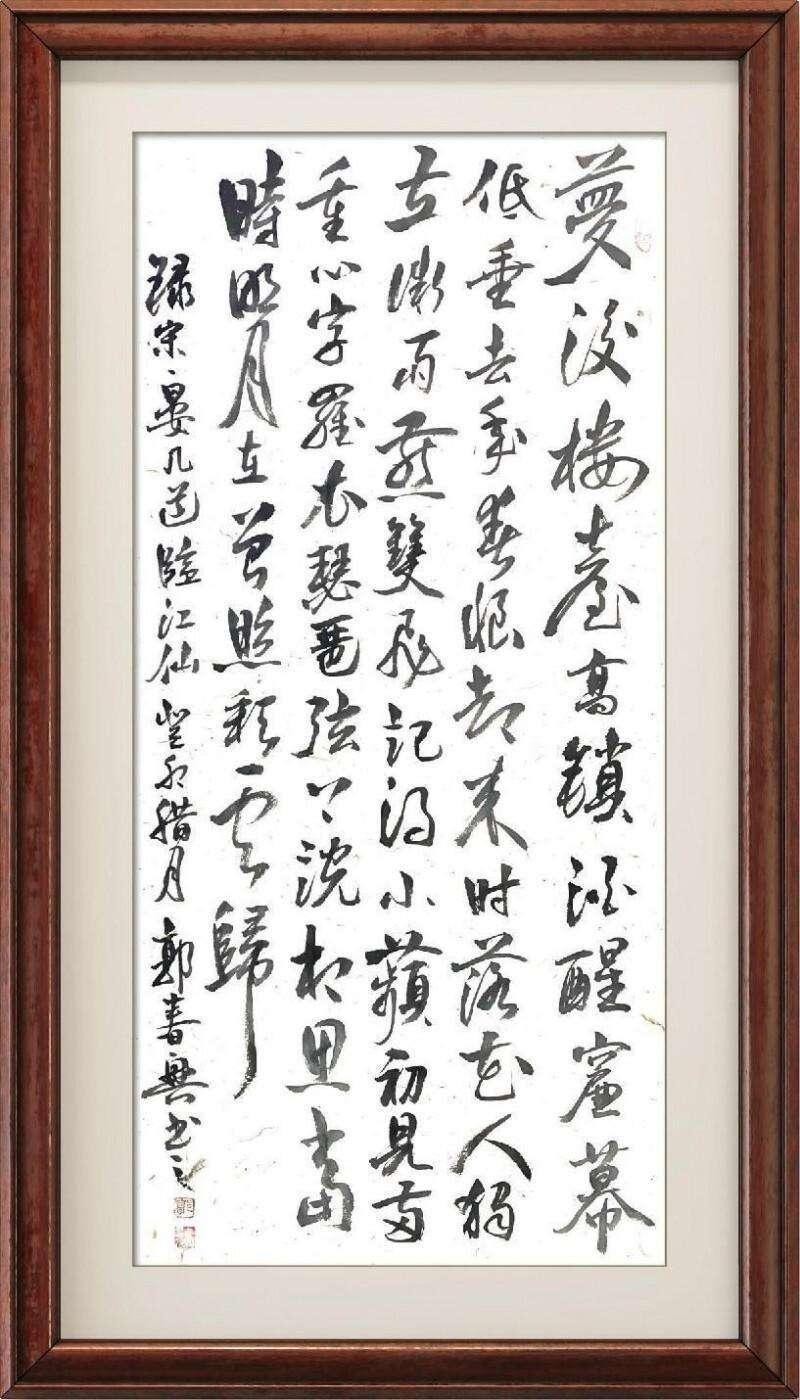 夢後樓臺高鎖酒醒簾幕
低垂去年春恨却来时落花人獨
立微雨燕雙飛記得小蘋初見兩
重心字羅衣琵琶弦上説相思當
時明月在曾照彩雲歸
録宋晏几道臨江仙 癸卯腊月 郭春興书